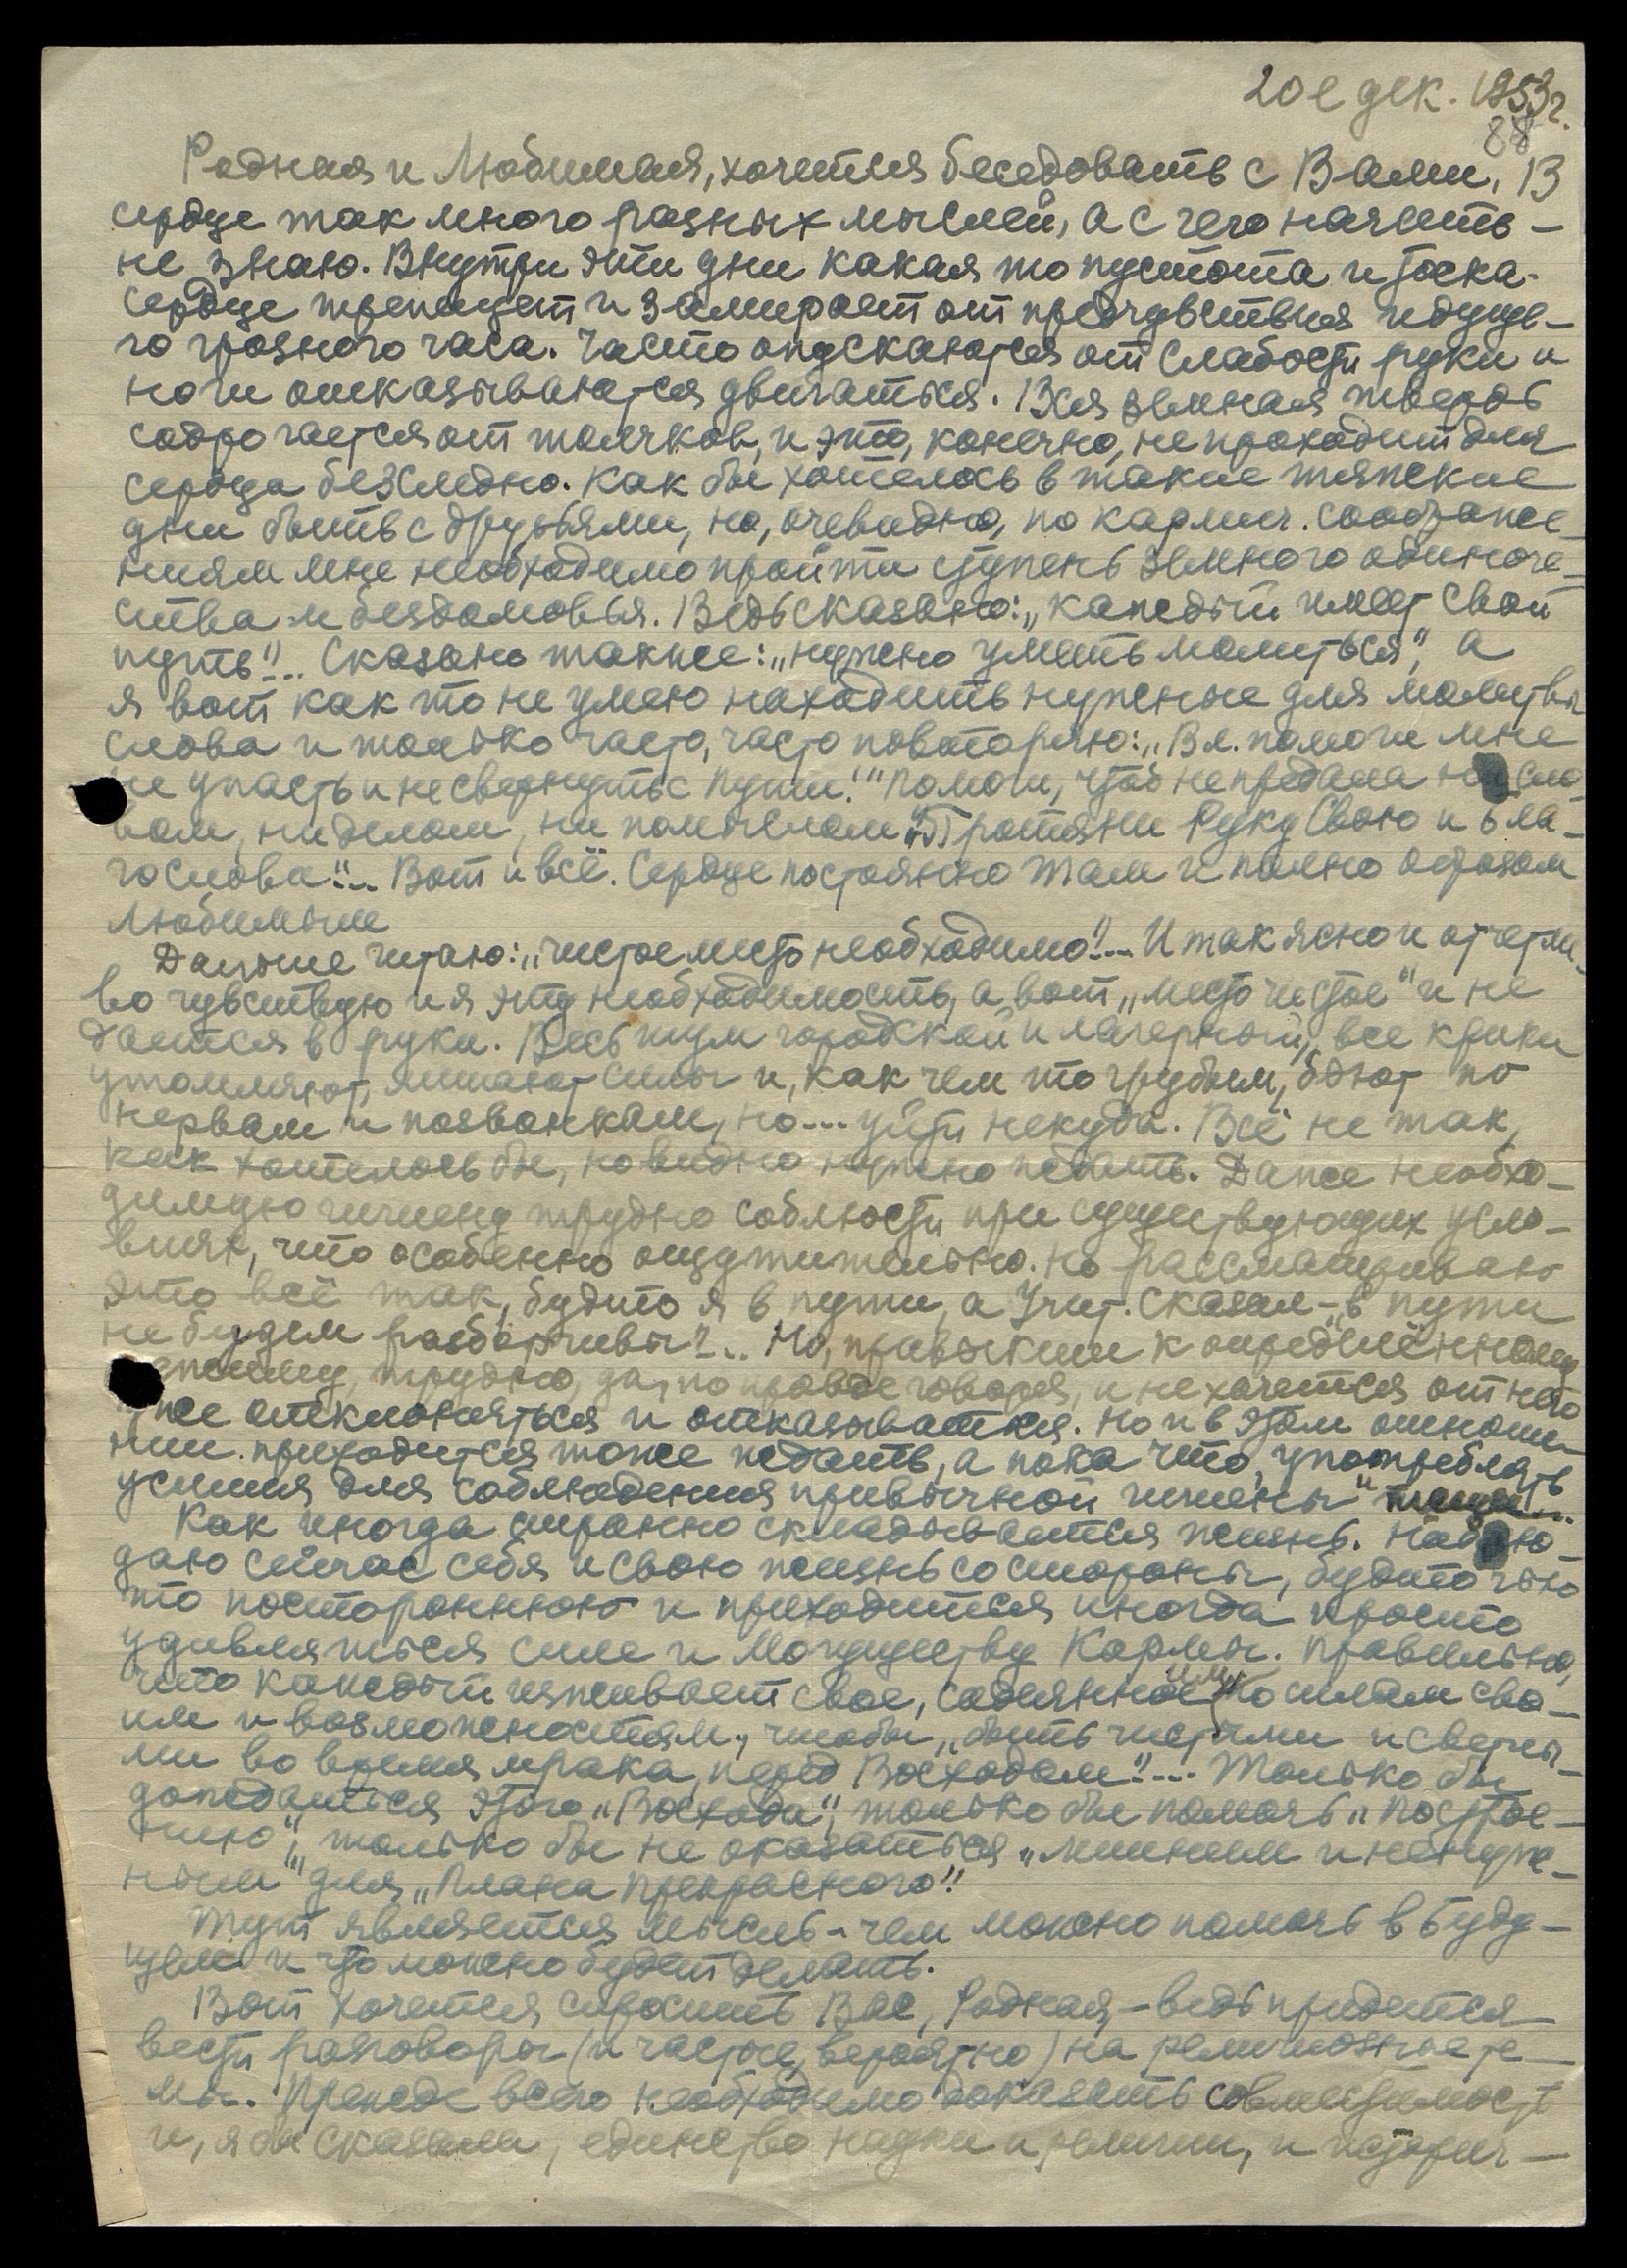 20 е дек. 1953 г.
88
Родная и Любимая, хочется беседовать с Вами. В
сердце так много разных мыслей, а с чего начать –
не знаю. Внутри эти дни какая то пустота и тоска.
Сердце трепещет и замирает от предчувствия идуще-
го грозного часа. Часто опускаются от слабости руки и
ноги отказываются двигаться. Вся земная твердь
содрогается от толчков, и это, конечно, не проходит для
сердца безследно. Как бы хотелось в такие тяжские
дни быть с друзьями, но, очевидно, по кармич. соображе-
ниям мне необходимо пройти ступень земного одиноче-
ства и бездомовья. Ведь сказано: „каждый имеет свой
путь"... Сказано также: „нужно уметь молиться", а
я вот как то не умею находить нужные для молитвы
слова и только часто, часто повторяю: „Вл. помоги мне
не упасть и не свернуть с пути!" Помоги, чтоб не предала ни сло-
вом, ни делом, ни помыслом!" „Протяни Руку Свою и бла-
гослови"... Вот и всё. Сердце постоянно там и полно образом
Любимым
Дальше читаю: „чистое место необходимо"... И так ясно и отчетли-
во чувствую и я эту необходимость, а вот „место чистое" и не
дается в руки. Весь шум городской и лагерный, все крики
утомляют, лишают силы и, как чем то грубым, бьют по
нервам и позвонкам, но... уйти некуда. Всё не так,
как хотелось бы, но видно нужно ждать. Даже необхо-
димую гигиену трудно соблюсти при существующих усло-
виях, что особенно ощутительно. Но рассматриваю
это всё так, будто я в пути, а Учит. сказал – „в пути
не будем разборчивы"... Но, привыкши к определённому
режиму, трудно, да, по правде говоря, и не хочется от него
уже отклоняться и отказываться. Но и в этом отноше-
нии приходится тоже ждать, а пока что, употреблять
усилия для соблюдения привычной гигиены"...
Как иногда странно складывается жизнь. Наблю-
даю сейчас себя и свою жизнь со стороны, будто чью
то постороннюю и приходится иногда просто
удивляться силе и Могуществу Кармы. Правильно,
что каждый изживает свое, содеянное им, по силам сво-
им и возможностям, чтобы „быть чистыми и сверны-
ми во время мрака, перед Восходом"... Только бы
дождаться этого „Восхода", только бы помочь „построе-
нию", только бы не оказаться „лишним и ненуж-
ным" для „Плана Прекрасного"!
Тут является мысль – чем можно помочь в буду-
щем и что можно будет делать.
Вот хочется спросить Вас, Родная, – ведь придется
вести разговоры (и частые, вероятно) на религиозные те-
мы. Прежде всего необходимо доказать совместимость
и, я бы сказала, единство науки и религии, и историч-